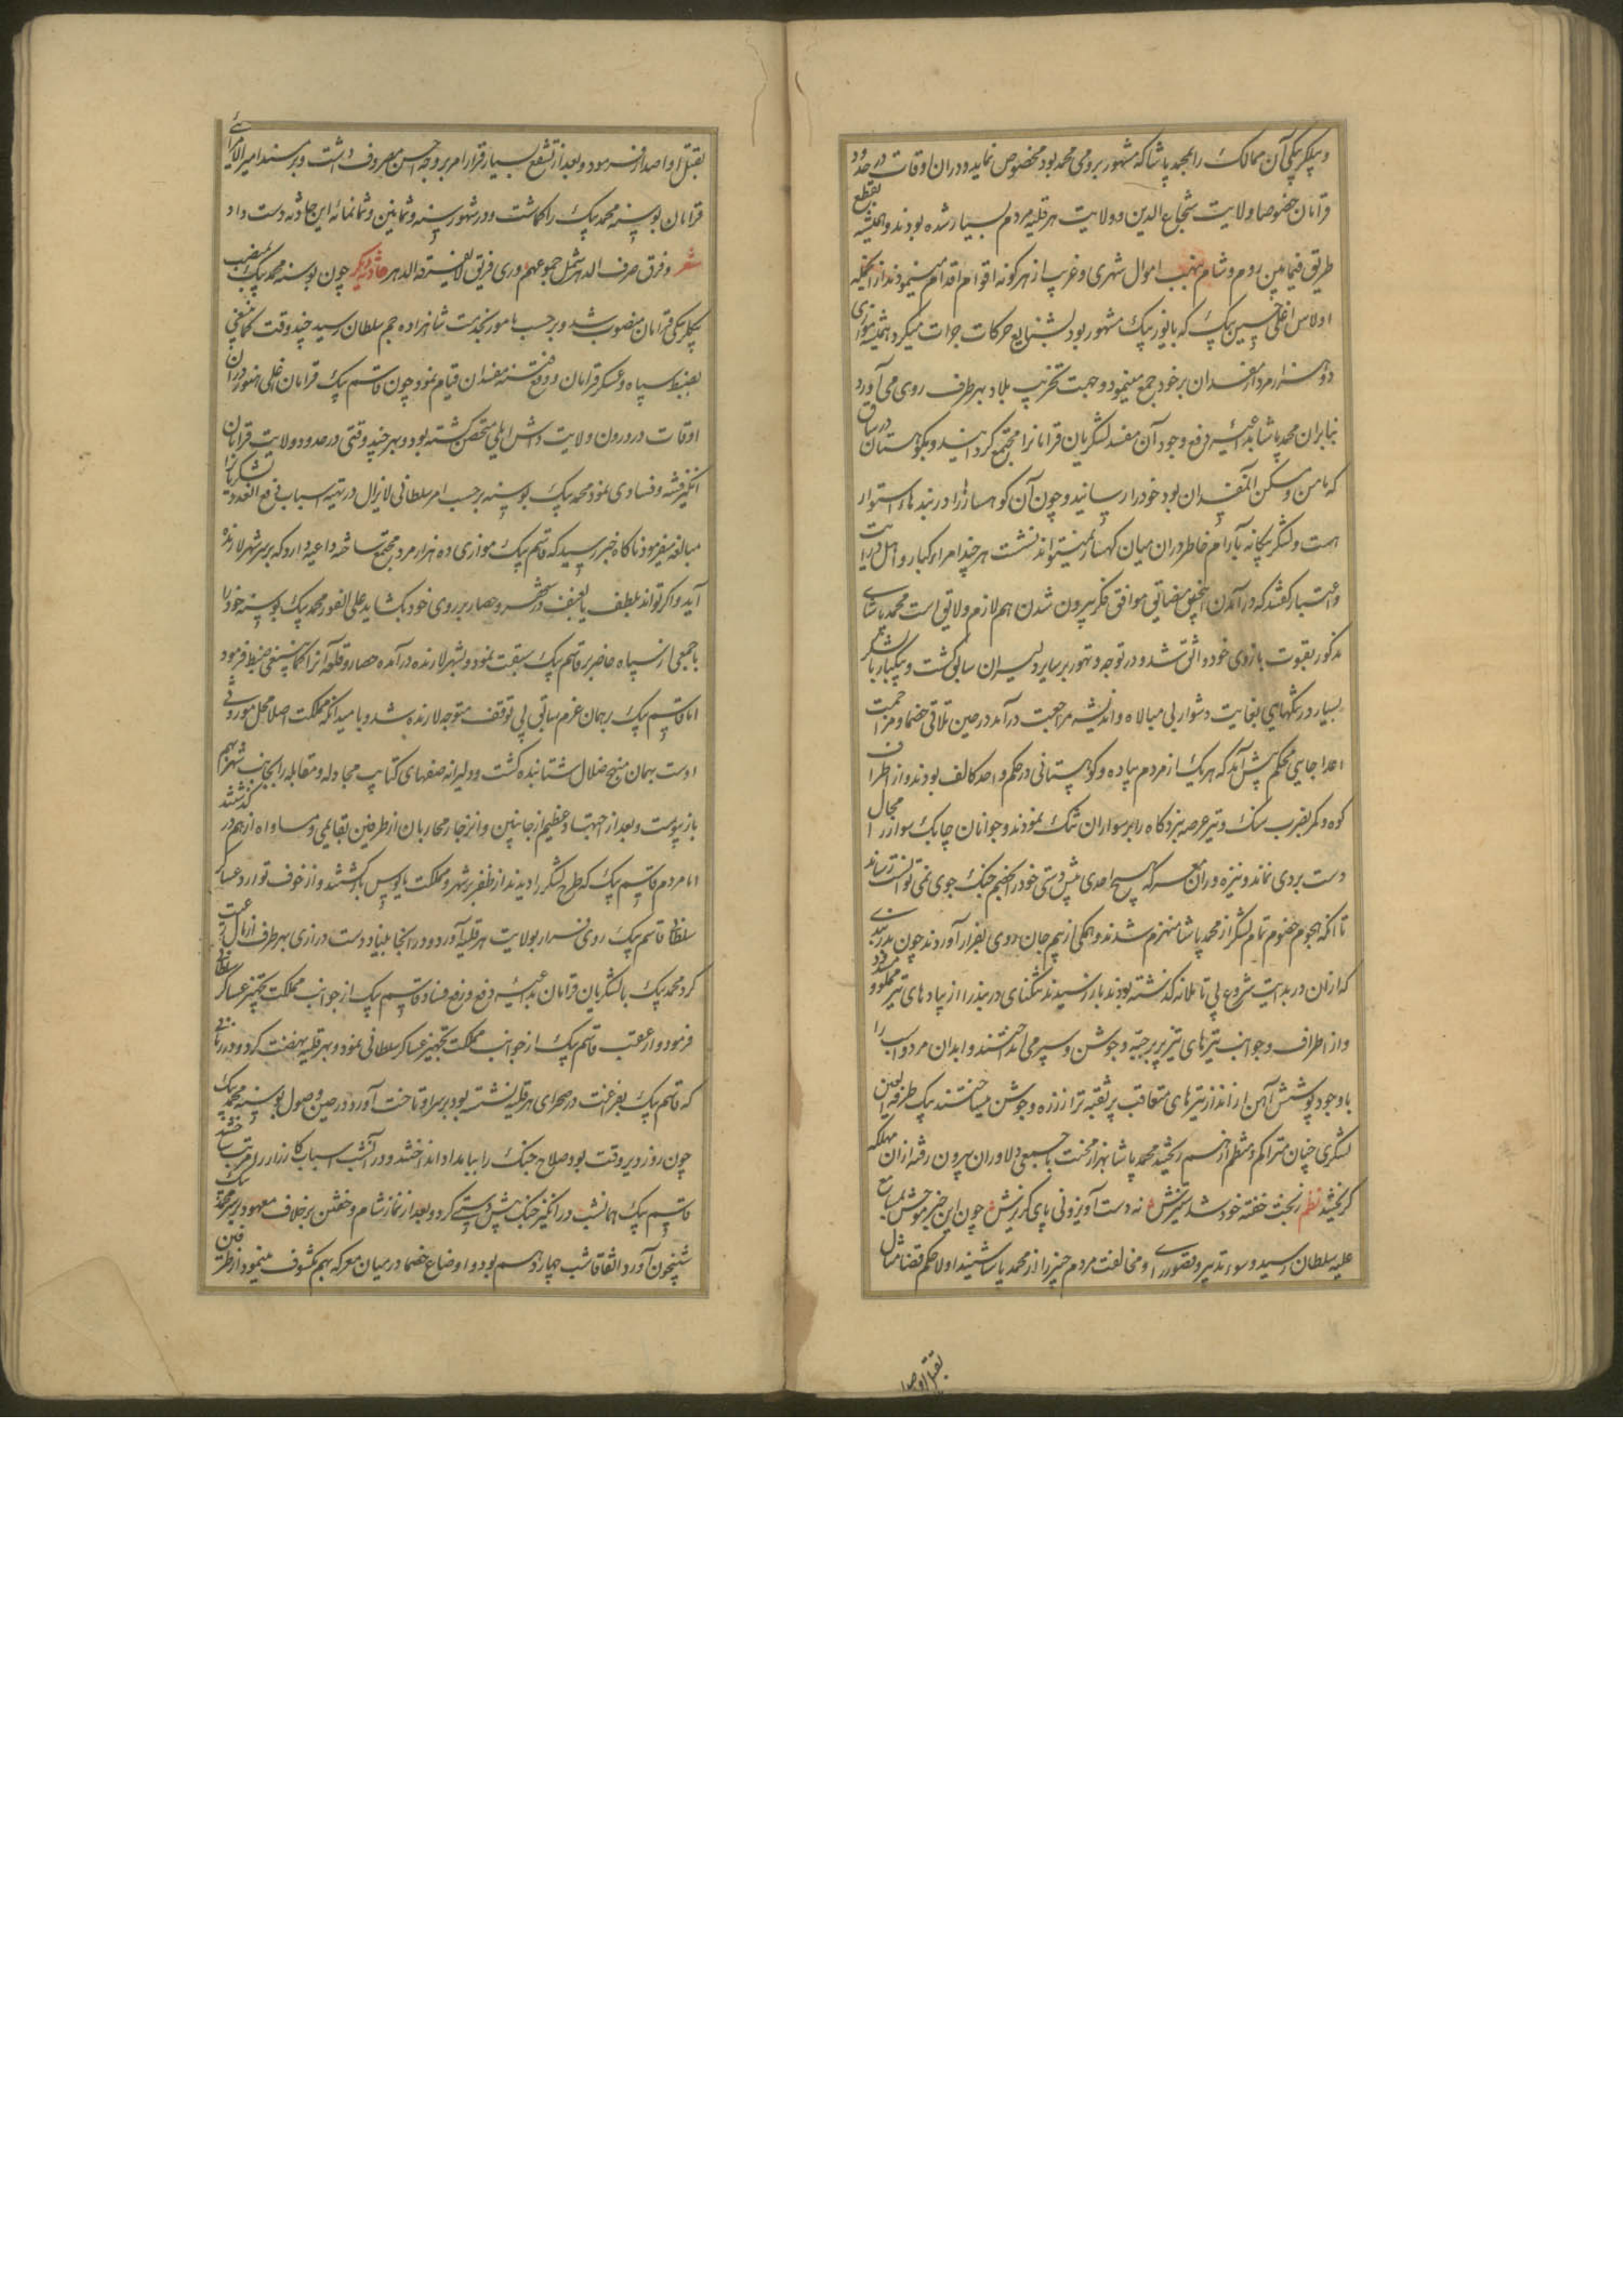 و بیکلربیکی آن ممالک را بمحمد پاشا که مشهور برومی محمد بود مخصوص نماید و دران اوقات در حدود
قرامان خصوصا ولایت شجاع الدین و ولایت هرقلیه مردم بسیار شده بودند و همیشه بقطع
طریق فیمابین روم و شام و نهب اموال شهری و غریب از هرکونه اقوام اقدام مینمودند از آنجمله
اولاس اغلی حسین بیک که بایوز بیک مشهور بود بشنایع حرکات جرات میکرد و همیشه موازی
دو هزار مرد از مفسدان بر خود جمع مینمود و جهت تخریب بلاد بهر طرف روی می آورد
بنابران محمد پاشا بداعیه دفع وجود آن مفسد لشکریان قرامانرا مجتمع کردانید و بکوهستان در ساق
که مامن و مسکن آن مفسدان بود خود را رسانید و چون آن کوهسار را در بندهای استوار
هست و لشکر بیکانه بآرام خاطر دران میان کهسار نمیتواند نشست هر چند امراء کبار و اهل درایت
و اعتبار کفتند که در آمدن این مضایق موافق فکر بیرون شدن هم لازم ولایق است محمد پاشای
مذکور بقوت بازوی خود واثق شد و در توجه و تهور بر سایر دلیران سابق کشت و بیکبار با لشکر
بسیار در تنکهای بغایت دشوار بی مبالاه و اندیشه مراجعت درآمد در حین تلاقی خصما و مزاحمت
اعدا جایی محکم پیش آمد که هر یک از مردم پیاده و کوهستانی در حکم واحد کالف بودند و از اطراف
کوه و کمر بضرب سنک و تیر عرصه نبردکاه را بر سواران تنک نمودند و جوانان چابک سوار را مجال
دست بردی نماند و نیزه وران معرکه هیچ احدی پیش دستی خود را بخصم جنک جوی نمی توانست رساند
تا انکه بهجوم خصوم تمام لشکر از محمد پاشا منهزم شدند و همکی از بیم جان روی بفرار آوردند چون بدربندی
که ازان در بدایت شروع بی تاملانه کذشته بودند باز رسیدند تنکنای دربند را از پیادهای تیر مملو و
و از اطراف و جوانب تیرهای تیزپر بر جبه و جوشن و سپر می انداختند و ابدان مرد و اسب را
با وجود پوشش آهن از انداز تیرهای متعاقب پر ثقبه تر از زره و جوشن میساختند بیک طرفه العین
لشکری چنان متراکم و منتظم از هم ریخت محمد پاشا بهزار محنت با جمعی دلاوران بیرون رفته ازان مهلکه
کریخت نظم ز بخت خفته خود شد ستیزش نه دست آویز ونی پای کریزش چون این خبر موحش بمسامع
علیه سلطان رسید و سوء تدبیر و قصور رای و مخالفت مردم خبیر را از محمد پاشا شنید اولا حکم قضا مثال
بقتل او صدا
بقتل او اصدار فرمود و بعد از تشفع بسیار قرار امر بر وجه احسن مصروف داشت و بر مسند امیر الامرائی
قرامان بوسنه محمد بیک را کماشت و در شهور سنه وثمانین وثمانمائه این حادثه دست داد
شعر وفرق صرف الدهر شمل جموعهم وای فریق لا یفرقه الدهر حادثه دیکر چون بوسنه محمد بیک بمنصب
بیکلربیکی قرامان منصوب شد و بر حسب مامور بخدمت شاهزاده جم سلطان رسید چند وقت کماینبغی
بضبط سپاه و عسکر قرامان و دفع فتنه مفسدان قیام نمود چون قاسم بیک قرامان اغلی هنوز دران
اوقات در درون ولایت طاش ایلی متحصن کشته بود و بهر چند وقتی در صدود ولایت قرامان
انکیز فتنه و فسادی نمود محمد بیک بوسنه بر حسب امر سلطانی لایزال در تهیه اسباب دفع العدو لشکریانرا
مبالغه میفرمود ناکاه خبر رسید که قاسم بیک موازی ده هزار مرد مجتمع ساخته داعیه دارد که بر سر شهر لارنده
آید و اکر تواند بلطف یا بعنف در شهر و حصار بر روی خود بکشاید علی الفور محمد بیک بوسنه خود را
با جمعی از سپاه حاضر بر قاسم بیک سبقت نمود و بشهر لارنده درآمده حصار و قلعه آنرا کماینبغی ضبط فرمود
اما قاسم بیک بر همان عزم سابق بی توقف متوجه لارنده شد و با امید انکه مملکت اصلا محل موروثی
اوست بهمان منهج ضلال شتابنده کشت و دلیرانه صفهای کتایب مجادله و مقابله را بجانب شهر بهم
باز پیوست و بعد از اجتهاد عظیم از جانبین و انزجار محاربان از طرفین بقایمی و مساواه از هم در کذشتند
اما مردم قاسم بیک که طرح لشکر را دیدند از ظفر بر شهر و مملکت مایوس باز کشتند و از خوف توارد عساکر
سلطانی قاسم بیک روی فرار بولایت هرقلیه آورد و در انجا بنیاد دست درازی بهر طرف از اهل رعیت
کرد محمد بیک با لشکریان قرامان بداعیه دفع و رفع فساد قاسم بیک از جوانب مملکت تجهیز عساکر سلطانی
فرمود و از عقب قاسم بیک از جوانب مملکت تجهیز عساکر سلطانی نمود و بهرقلیه نهضت کرد و در زمانی
که قاسم بیک بفراغت در صحرای هرقلیه نشسته بود بر سر او تاخت آورد و در حین وصول بوسنه محمد بیک
چون روز دیر وقت بود صلاح جنک را ببامداد انداختند و در آنشب اسباب کارزار را مرتب ساختند
قاسم بیک همانشب در انکیز جنک پیش دستی کرد و بعد از نماز شام و خفتن بر خلاف معهود بر سر محمد بیک
شبیخون آورد و اتفاقا شب چهاردهم بود و اوضاع خصما در میان معرکه بهم مکشوف مینمود از طرفین